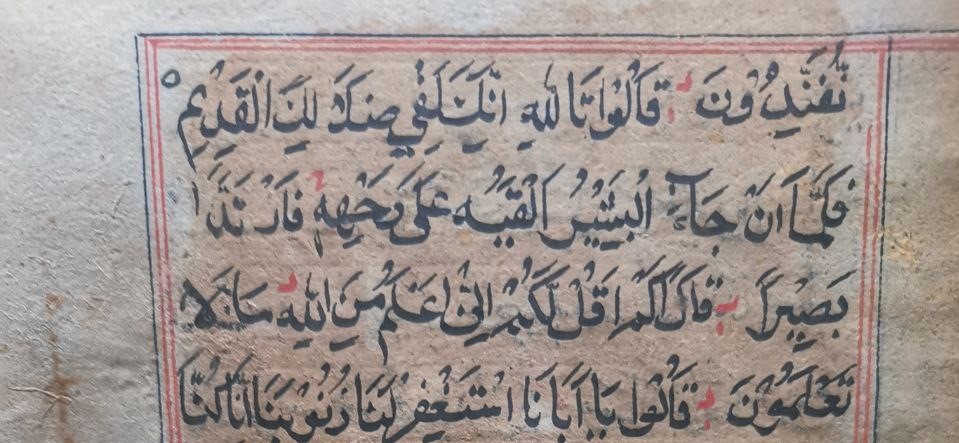 تُفَنِّدُوْنَ قَالُوْا تَا للهِ اِنَّكَ لَفِيْ ضَلٰلِكَ الْقَدِيْمِ
فَلَمَّا اَنْ جَآءَ الْبَشِيْرُ اَلْقٰيهُ عَلٰى وَجْهِهٖ فَارْتَدَّ
بَصِيْرًا قَالَ اَلَمْ اَقُلْ لَّكُمْ اِنِّىْ اَعْلَمُ مِنَ اللهِ مَا لَا
تَعْلَمُوْنَ قَالُوْا يَا اَبَا نَا اسْتَغْفِرْ لَنَا ذُنُوْبَنَا اِنَّا كُنَّا